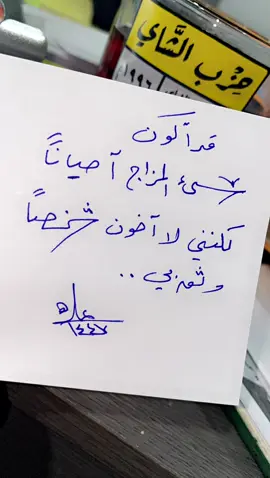 حزب الشاي
١٩٩٦
قد أكون
سيء المزاج أحياناً
لكنني لا أخون شخصاً
وثق بي ..